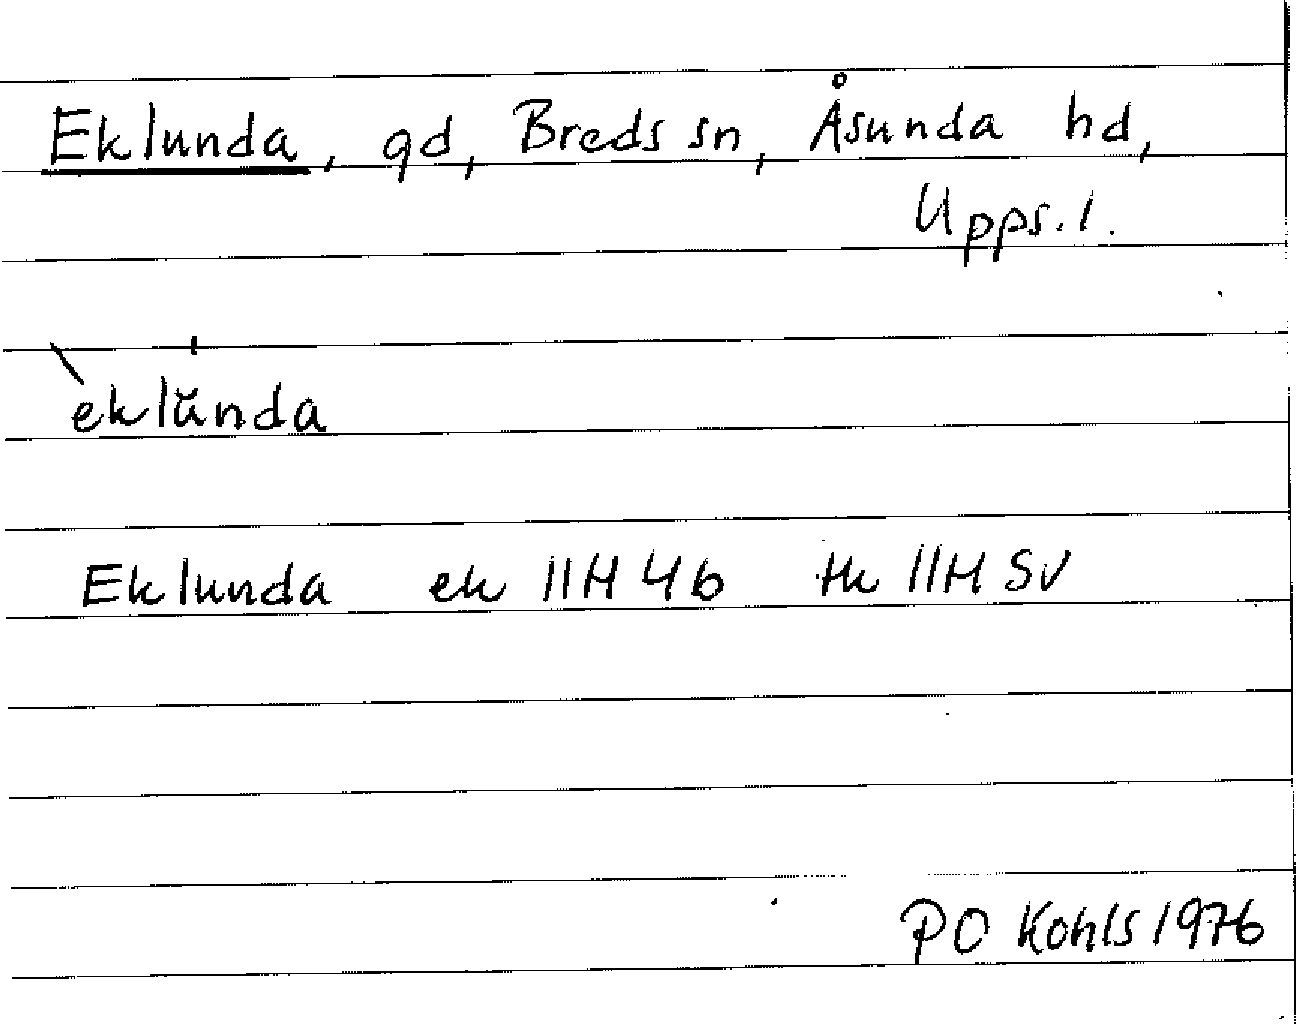 Eklunda, gd, Breds sn, Åsunda hd,
Upps. l.
`eklŭ'nda
Eklunda ek 11H 4b tk 11H SV
PO Kohls 1976